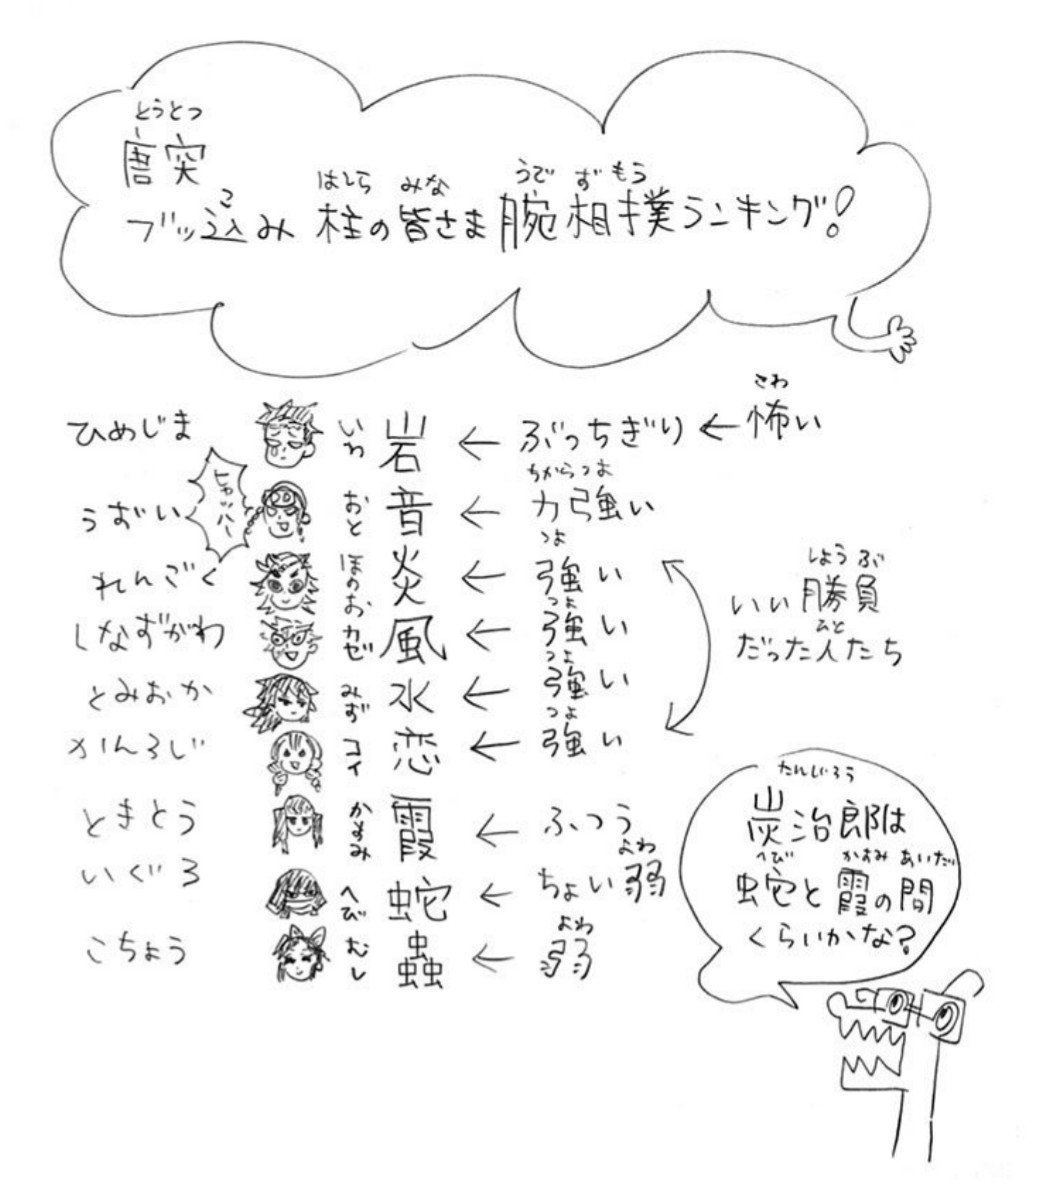 とうとつ
唐突
ブッ込み 柱の皆さま 腕相撲ランキング!
こ はしら みな うで ずもう
ひめじま いわ 岩 ← ぶっちぎり ← 怖い
こわ
うずい ヒャッハー おと 音 ← 力強い
ちからつよ
れんごく ほのお 炎 ← 強い
つよ
しなずがわ カゼ 風 ← 強い
つよ
とみおか みず 水 ← 強い
つよ
かんろじ コイ 恋 ← 強い
つよ
いい勝負
しょうぶ
だった人たち
ひと
ときとう かすみ 霞 ← ふつう
いぐろ へび 蛇 ← ちょい弱
よわ
こちょう むし 蟲 ← 弱
よわ
たんじろう
炭治郎は
へび かすみ あいだ
蛇と霞の間
くらいかな?